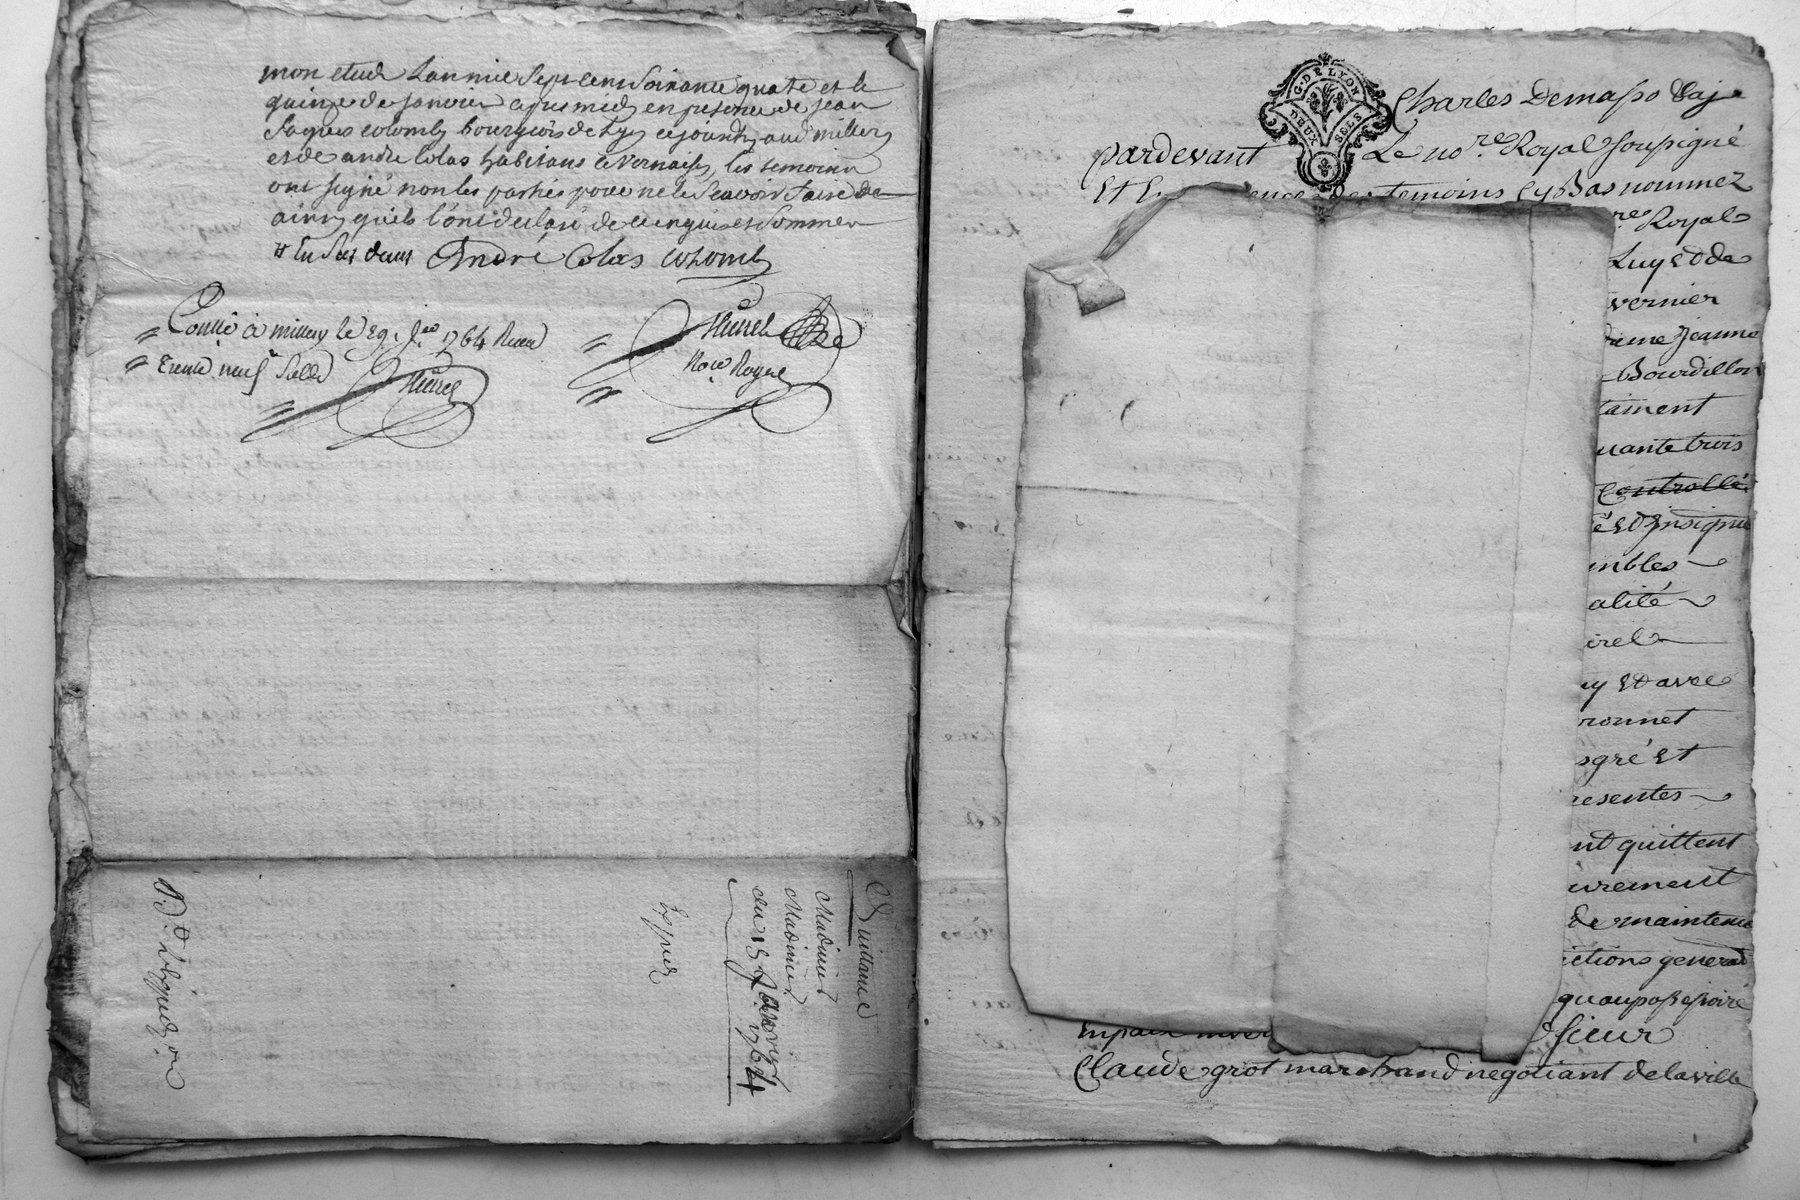 mon etude L'an mil sept cent soixante quatre et le
quinze de janvier apres midy en presence de jean
Jaques colomb bourgeois de Lyon
et de andre Colas habitans a vernaison les temoins
ont signé non les parties pour ne le sçavoir faire de
ainsy qu'ils l'ont declaré de ce enquis et sommer
André Colas colomb
Conllé à millery le 29. 1764 Reçu
trente neuf sols
Nore Royal
Quittance
du 15 Janvier 1764
G. DE LYON
DEUX SOLS
Charles Demasso
pardevant Le nore Royal soussigné
Et En temoins cy Bas nommez
re Royal
Luy Et de
vernier
dame Jeanne
Bourdillon
tament
uante trois
Controllé
é Et Insignué
embles
alité
irel
uy Et avec
ronnet
sgré Et
resentes
nt quittent
urement
de maintenue
ictions general
qu'au possessoire
sieur
Claude grot marchand negotiant de la ville